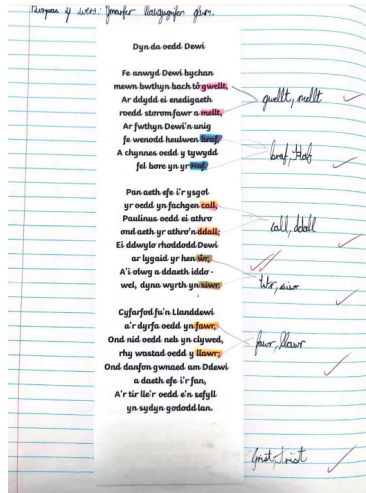 Dyn da oedd Dewi
Fe anwyd Dewi bychan
mewn bwthyn bach tô gwellt,
Ar ddydd ei enedigaeth
roedd storom fawr a mellt,
Ar fwthyn Dewi'n unig
fe wenodd heulwen braf,
A chynnes oedd y tywydd
fel bore yn yr Haf.
Pan aeth efe i'r ysgol
yr oedd yn fachgen call,
Paulinus oedd ei athro
ond aeth yr athro'n ddall;
Ei ddwylo rhoddodd Dewi
ar lygaid yr hen ŵr,
A'i olwg a ddaeth iddo -
wel, dyna wyrth yn siwr.
Cyfarfod fu'n Llanddewi
a'r dyrfa oedd yn fawr,
Ond nid oedd neb yn clywed,
rhy wastad oedd y llawr;
Ond danfon gwnaed am Ddewi
a daeth efe i'r fan,
A'r tir lle'r oedd e'n sefyll
yn sydyn gododd lan.
gwellt, mellt
braf, Haf
call, ddall
Wr, siwr
fawr, llawr